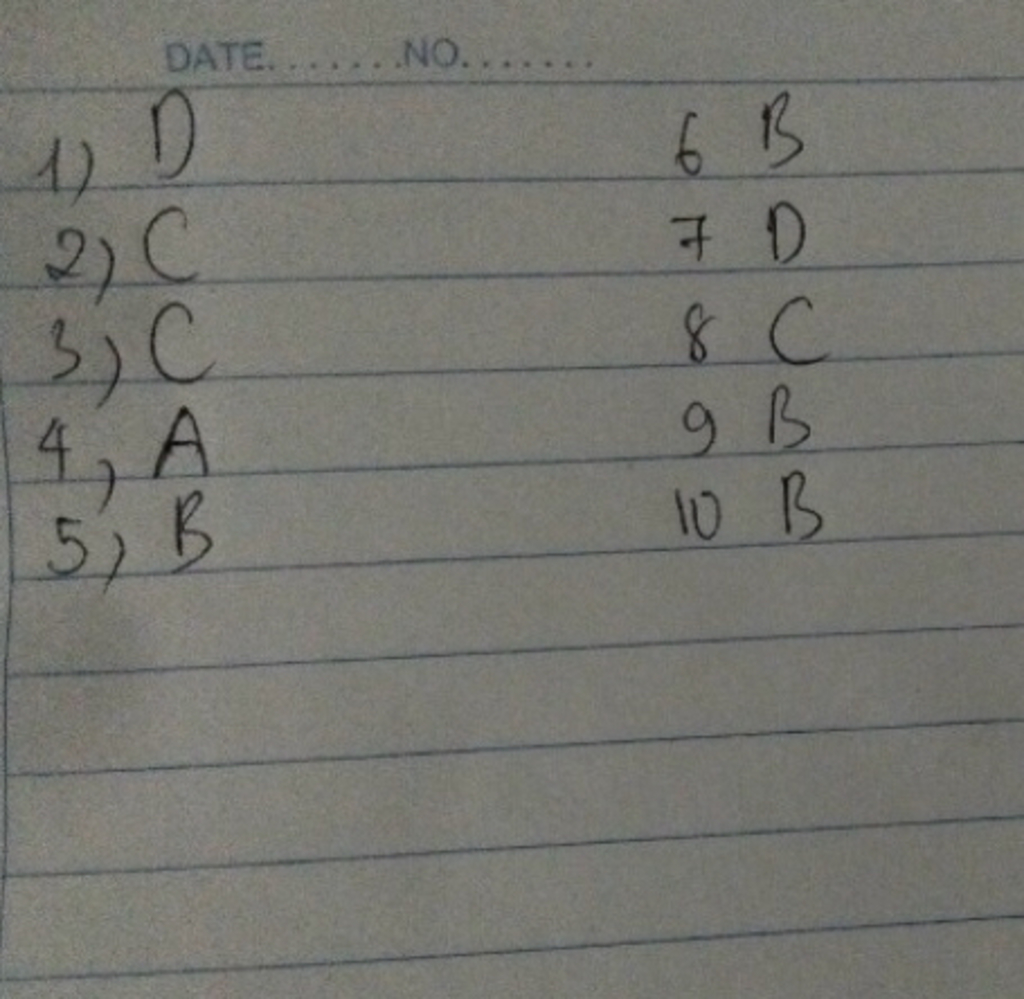 DATE.......NO.......
1) D
2) C
3) C
4, A
5) B
6 B
7 D
8 C
9 B
10 B